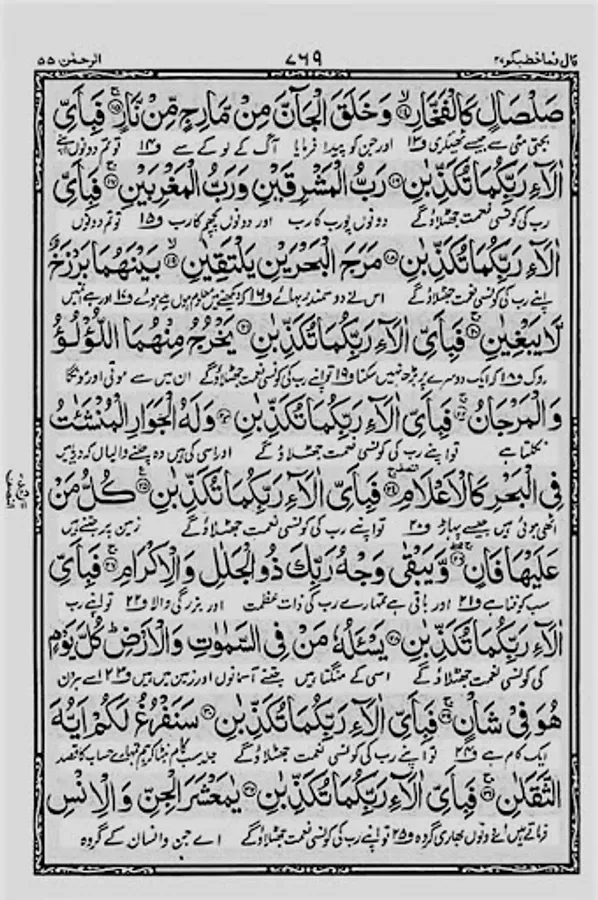 الرحمٰن ۵۵ ۷۶۹ قال فما خطبکم ۲۷
صَلْصَالٍ كَالْفَخَّارِ ﴿۱۴﴾ وَخَلَقَ الْجَآنَّ مِنْ مَّارِجٍ مِّنْ نَّارٍ ﴿۱۵﴾ فَبِاَىِّ
بجتی مٹی سے جیسے ٹھیکری ف۱۳ اور جن کو پیدا فرمایا آگ کے لوکے سے ف۱۴ تو تم دونوں اپنے
اٰلَآءِ رَبِّكُمَا تُكَذِّبٰنِ ﴿۱۶﴾ رَبُّ الْمَشْرِقَيْنِ وَرَبُّ الْمَغْرِبَيْنِ ﴿۱۷﴾ فَبِاَىِّ
رب کی کونسی نعمت جھٹلاؤ گے دونوں پورب کا رب اور دونوں پچھم کا رب ف۱۵ تو تم دونوں
اٰلَآءِ رَبِّكُمَا تُكَذِّبٰنِ ﴿۱۸﴾ مَرَجَ الْبَحْرَيْنِ يَلْتَقِيٰنِ ﴿۱۹﴾ بَيْنَهُمَا بَرْزَخٌ
اپنے رب کی کونسی نعمت جھٹلاؤ گے اس نے دو سمندر بہائے ف۱۶ کہ دیکھنے میں معلوم ہوں ملے ہوئے ف۱۷ اور ہے ان میں
لَّا يَبْغِيٰنِ ﴿۲۰﴾ فَبِاَىِّ اٰلَآءِ رَبِّكُمَا تُكَذِّبٰنِ ﴿۲۱﴾ يَخْرُجُ مِنْهُمَا اللُّؤْلُؤُ
روک ف۱۸ کہ ایک دوسرے پر بڑھ نہیں سکتا ف۱۹ تو اپنے رب کی کونسی نعمت جھٹلاؤ گے ان میں سے موتی اور مونگا
وَالْمَرْجَانُ ﴿۲۲﴾ فَبِاَىِّ اٰلَآءِ رَبِّكُمَا تُكَذِّبٰنِ ﴿۲۳﴾ وَلَهُ الْجَوَارِ الْمُنْشَئٰتُ
نکلتا ہے تو اپنے رب کی کونسی نعمت جھٹلاؤ گے اور اسی کی ہیں وہ چلنے والیاں کہ دریا میں
فِى الْبَحْرِ كَالْاَعْلَامِ ﴿۲۴﴾ فَبِاَىِّ اٰلَآءِ رَبِّكُمَا تُكَذِّبٰنِ ﴿۲۵﴾ كُلُّ مَنْ
اٹھی ہوئی ہیں جیسے پہاڑ ف۲۰ تو اپنے رب کی کونسی نعمت جھٹلاؤ گے زمین پر جتنے ہیں
عَلَيْهَا فَانٍ ﴿۲۶﴾ وَّيَبْقٰى وَجْهُ رَبِّكَ ذُو الْجَلٰلِ وَالْاِكْرَامِ ﴿۲۷﴾ فَبِاَىِّ
سب کو فنا ہے ف۲۱ اور باقی ہے تمہارے رب کی ذات عظمت اور بزرگی والا ف۲۲ تو اپنے رب
اٰلَآءِ رَبِّكُمَا تُكَذِّبٰنِ ﴿۲۸﴾ يَسْئَلُهٗ مَنْ فِى السَّمٰوٰتِ وَالْاَرْضِ كُلَّ يَوْمٍ
کی کونسی نعمت جھٹلاؤ گے اسی کے منگتا ہیں جتنے آسمانوں اور زمین میں ہیں ف۲۳ اسے ہر دن
هُوَ فِىْ شَاْنٍ ﴿۲۹﴾ فَبِاَىِّ اٰلَآءِ رَبِّكُمَا تُكَذِّبٰنِ ﴿۳۰﴾ سَنَفْرُغُ لَكُمْ اَيُّهَ
ایک کام ہے ف۲۴ تو اپنے رب کی کونسی نعمت جھٹلاؤ گے جلد سب کام نبٹا کر ہم تمہارے حساب کا قصد
الثَّقَلٰنِ ﴿۳۱﴾ فَبِاَىِّ اٰلَآءِ رَبِّكُمَا تُكَذِّبٰنِ ﴿۳۲﴾ يٰمَعْشَرَ الْجِنِّ وَالْاِنْسِ
فرماتے ہیں اے دونوں بھاری گروہ ف۲۵ تو اپنے رب کی کونسی نعمت جھٹلاؤ گے اے جن و انسان کے گروہ